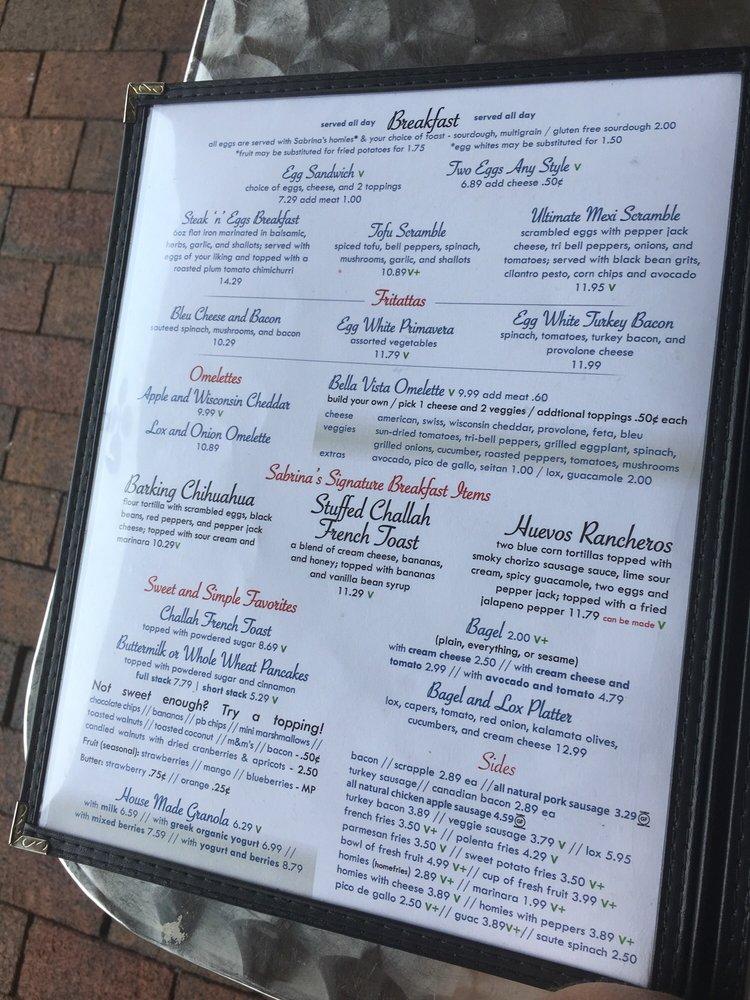 served all day Breakfast served all day
all eggs are served with Sabrina's homies* & your choice of toast - sourdough, multigrain / gluten free sourdough 2.00
*fruit may be substituted for fried potatoes for 1.75 *egg whites may be substituted for 1.50
Egg Sandwich V
choice of eggs, cheese, and 2 toppings
7.29 add meat 1.00
Two Eggs Any Style V
6.89 add cheese .50¢
Steak 'n' Eggs Breakfast
6oz flat iron marinated in balsamic,
herbs, garlic, and shallots; served with
eggs of your liking and topped with a
roasted plum tomato chimichurri
14.29
Tofu Scramble
spiced tofu, bell peppers, spinach,
mushrooms, garlic, and shallots
10.89V+
Ultimate Mexi Scramble
scrambled eggs with pepper jack
cheese, tri bell peppers, onions, and
tomatoes; served with black bean grits,
cilantro pesto, corn chips and avocado
11.95 V
Frittattas
Bleu Cheese and Bacon
sauteed spinach, mushrooms, and bacon
10.29
Egg White Primavera
assorted vegetables
11.79 V
Egg White Turkey Bacon
spinach, tomatoes, turkey bacon, and
provolone cheese
11.99
Omelettes
Apple and Wisconsin Cheddar
9.99 V
Lox and Onion Omelette
10.89
Bella Vista Omelette V 9.99 add meat .60
build your own / pick 1 cheese and 2 veggies / addtional toppings .50¢ each
cheese american, swiss, wisconsin cheddar, provolone, feta, bleu
veggies sun-dried tomatoes, tri-bell peppers, grilled eggplant, spinach,
grilled onions, cucumber, roasted peppers, tomatoes, mushrooms
extras avocado, pico de gallo, seitan 1.00 / lox, guacamole 2.00
Sabrina's Signature Breakfast Items
Barking Chihuahua
flour tortilla with scrambled eggs, black
beans, red peppers, and pepper jack
cheese; topped with sour cream and
marinara 10.29V
Stuffed Challah
French Toast
a blend of cream cheese, bananas,
and honey; topped with bananas
and vanilla bean syrup
11.29 V
Huevos Rancheros
two blue corn tortillas topped with
smoky chorizo sausage sauce, lime sour
cream, spicy guacamole, two eggs and
pepper jack; topped with a fried
jalapeno pepper 11.79 can be made V
Sweet and Simple Favorites
Challah French Toast
topped with powdered sugar 8.69 V
Buttermilk or Whole Wheat Pancakes
topped with powdered sugar and cinnamon
full stack 7.79 | short stack 5.29 V
Not sweet enough? Try a topping!
chocolate chips // bananas // pb chips // mini marshmallows //
toasted walnuts // toasted coconut // m&m's // bacon - .50¢
candied walnuts with dried cranberries & apricots - 2.50
Fruit (seasonal): strawberries // mango // blueberries - MP
Butter: strawberry .75¢ // orange .25¢
House Made Granola 6.29 V
with milk 6.59 // with greek organic yogurt 6.99 //
with mixed berries 7.59 // with yogurt and berries 8.79
Bagel 2.00 V+
(plain, everything, or sesame)
with cream cheese 2.50 // with cream cheese and
tomato 2.99 // with avocado and tomato 4.79
Bagel and Lox Platter
lox, capers, tomato, red onion, kalamata olives,
cucumbers, and cream cheese 12.99
Sides
bacon // scrapple 2.89 ea // all natural pork sausage 3.29 GF
turkey sausage// canadian bacon 2.89 ea
all natural chicken apple sausage 4.59 GF
turkey bacon 3.89 // veggie sausage 3.79 V // lox 5.95
french fries 3.50 V+ // polenta fries 4.29 V
parmesan fries 3.50 V // sweet potato fries 3.50 V+
bowl of fresh fruit 4.99 V+// cup of fresh fruit 3.99 V+
homies (homefries) 2.89 V+ // marinara 1.99 V+
homies with cheese 3.89 V // homies with peppers 3.89 V+
pico de gallo 2.50 V+// guac 3.89V+// saute spinach 2.50